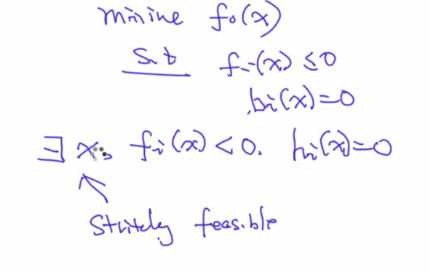 minine f₀(x)
s.t fi(x) ≤0
hi(x)=0
∃ x, fi(x)<0. hi(x)=0
Strictely feasible